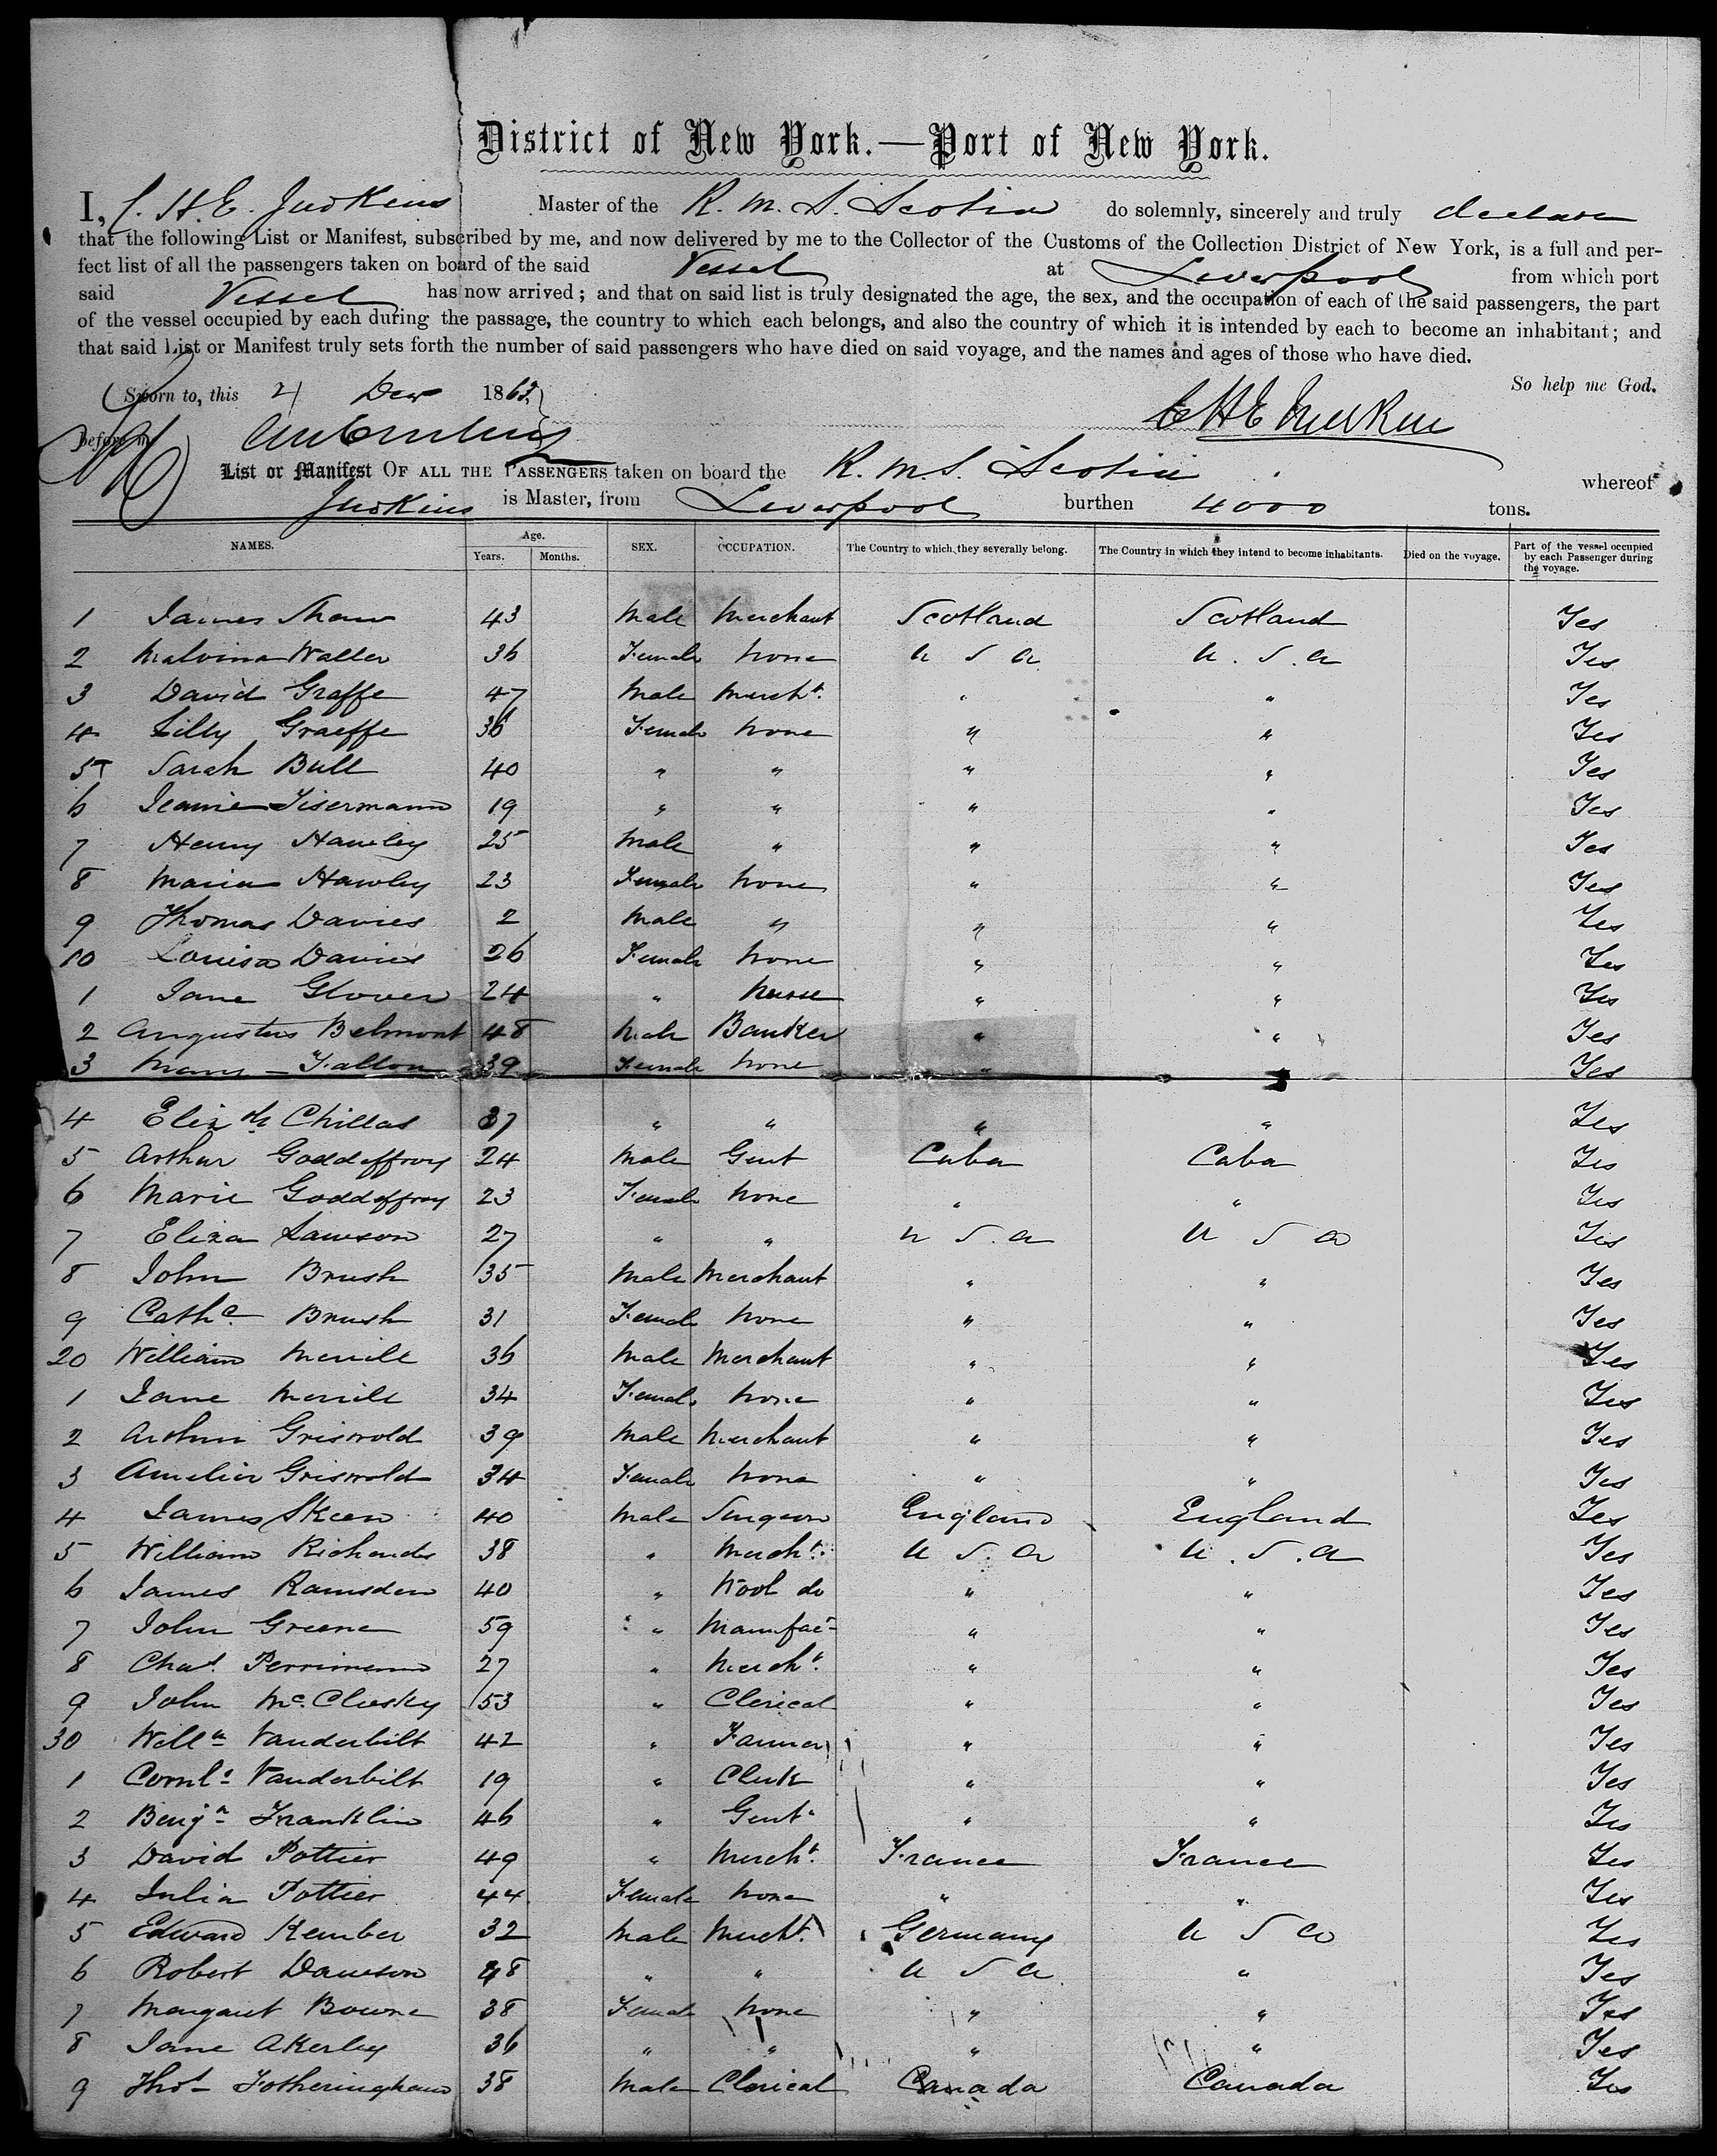 District of New York.—Port of New York.
I, C. H. E. Judkins Master of the R. M. S. Scotia do solemnly, sincerely and truly declare
that the following List or Manifest, subscribed by me, and now delivered by me to the Collector of the Customs of the Collection District of New York, is a full and per-
fect list of all the passengers taken on board of the said Vessel at Liverpool from which port
said Vessel has now arrived; and that on said list is truly designated the age, the sex, and the occupation of each of the said passengers, the part
of the vessel occupied by each during the passage, the country to which each belongs, and also the country of which it is intended by each to become an inhabitant; and
that said List or Manifest truly sets forth the number of said passengers who have died on said voyage, and the names and ages of those who have died.
So help me God.
Sworn to, this 21 Dec 186
before me C H E Judkins
List or Manifest OF ALL THE PASSENGERS taken on board the R. M. S. Scotia whereof
Judkins is Master, from Liverpool burthen 4000 tons.
NAMES. Age. Years. Months. SEX. OCCUPATION. The Country to which they severally belong. The Country in which they intend to become inhabitants. Died on the voyage. Part of the vessel occupied by each Passenger during the voyage.
1 James Shaw 43 Male Merchant Scotland Scotland Yes
2 Malvina Waller 36 Female None U S A U. S. A Yes
3 David Graffe 47 Male Mercht. " " Yes
4 Lilly Graeffe 36 Female None " " Yes
5 Sarah Bull 40 " " " " Yes
6 Jeannie 19 " " " " Yes
7 Henry Hawley 25 Male " " " Yes
8 Maria Hawley 23 Female None " " Yes
9 Thomas Davies 2 Male " " " Yes
10 Louisa Davies 26 Female None " " Yes
1 Jane Glover 24 " Nurse " " Yes
2 Augustus Belmont 48 Male Banker " " Yes
3 Mary Fallon 39 Female None " " Yes
4 Elizth Chillas 37 " " " " Yes
5 Arthur Goddeffroy 24 Male Gent Cuba Cuba Yes
6 Marie Goddeffroy 23 Female None " " Yes
7 Eliza Lawson 27 " " U S. A U S A Yes
8 John Brush 35 Male Merchant " " Yes
9 Cathe. Brush 31 Female None " " Yes
20 William Merrill 36 Male Merchant " " Yes
1 Jane Merrill 34 Female None " " Yes
2 Arthur Griswold 39 Male Merchant " " Yes
3 Amelia Griswold 34 Female None " " Yes
4 James Skeen 40 Male Surgeon England England Yes
5 William Richards 38 " Mercht. U S. A U. S. A Yes
6 James Ramsden 40 " Wool do " " Yes
7 John Greene 59 " Manufac- " " Yes
8 Chas. 27 " Mercht. " " Yes
9 John Mc.Closky 53 " Clerical " " Yes
30 Willm Vanderbilt 42 " Farmer " " Yes
1 Cornls Vanderbilt 19 " Clerk " " Yes
2 Benjn Franklin 46 " Gent. " " Yes
3 David Pottier 49 " Mercht. France France Yes
4 Julia Pottier 44 Female None " " Yes
5 Edward Kember 32 Male Mercht. Germany U S A Yes
6 Robert Dawson 48 " " U S A " Yes
7 Margaret Bowne 38 Female None " " Yes
8 Jane Akerley 36 " " " " Yes
9 Thos Fotheringham 38 Male Clerical Canada Canada Yes